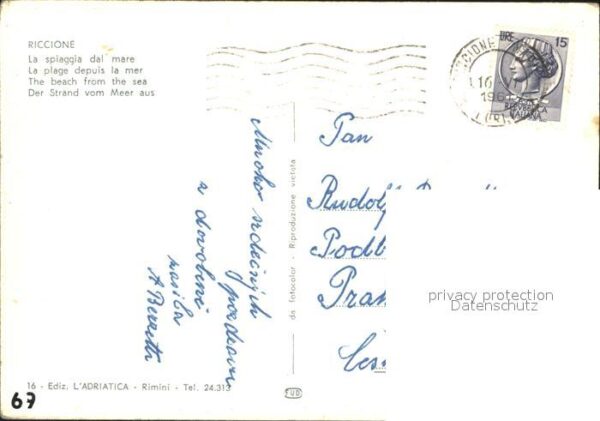 RICCIONE
La spiaggia dal mare
La plage depuis la mer
The beach from the sea
Der Strand vom Meer aus
LIRE 15
RICCIONE
16
196
REPVBBLICA
ITALIANA
Mnoho srdečných
pozdravů
z dovolené
zasílá
A Berretti
da fotocolor - Riproduzione vietata
Pan
Rudolf
Podb
Pra
Čes
privacy protection
Datenschutz
16 - Ediz. L'ADRIATICA - Rimini - Tel. 24.313
67